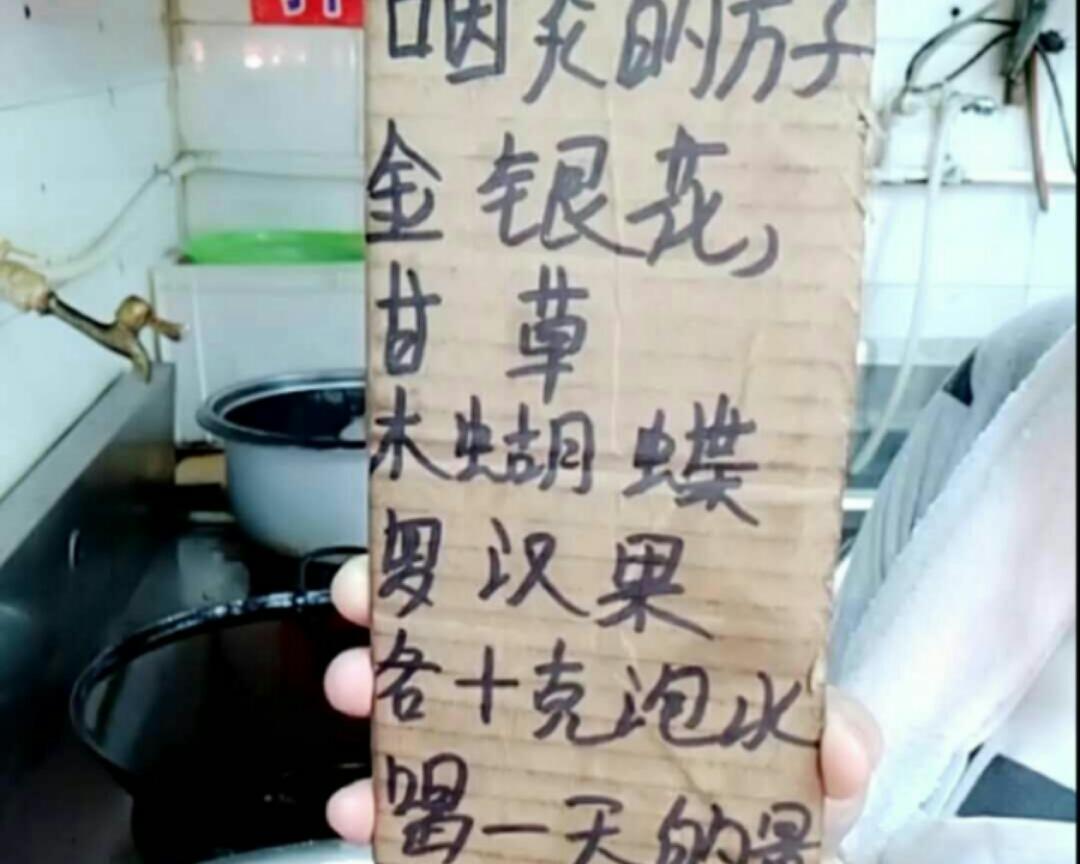 咽炎的方子
金银花,
甘草
木蝴蝶
罗汉果
各十克泡水
喝一天的量